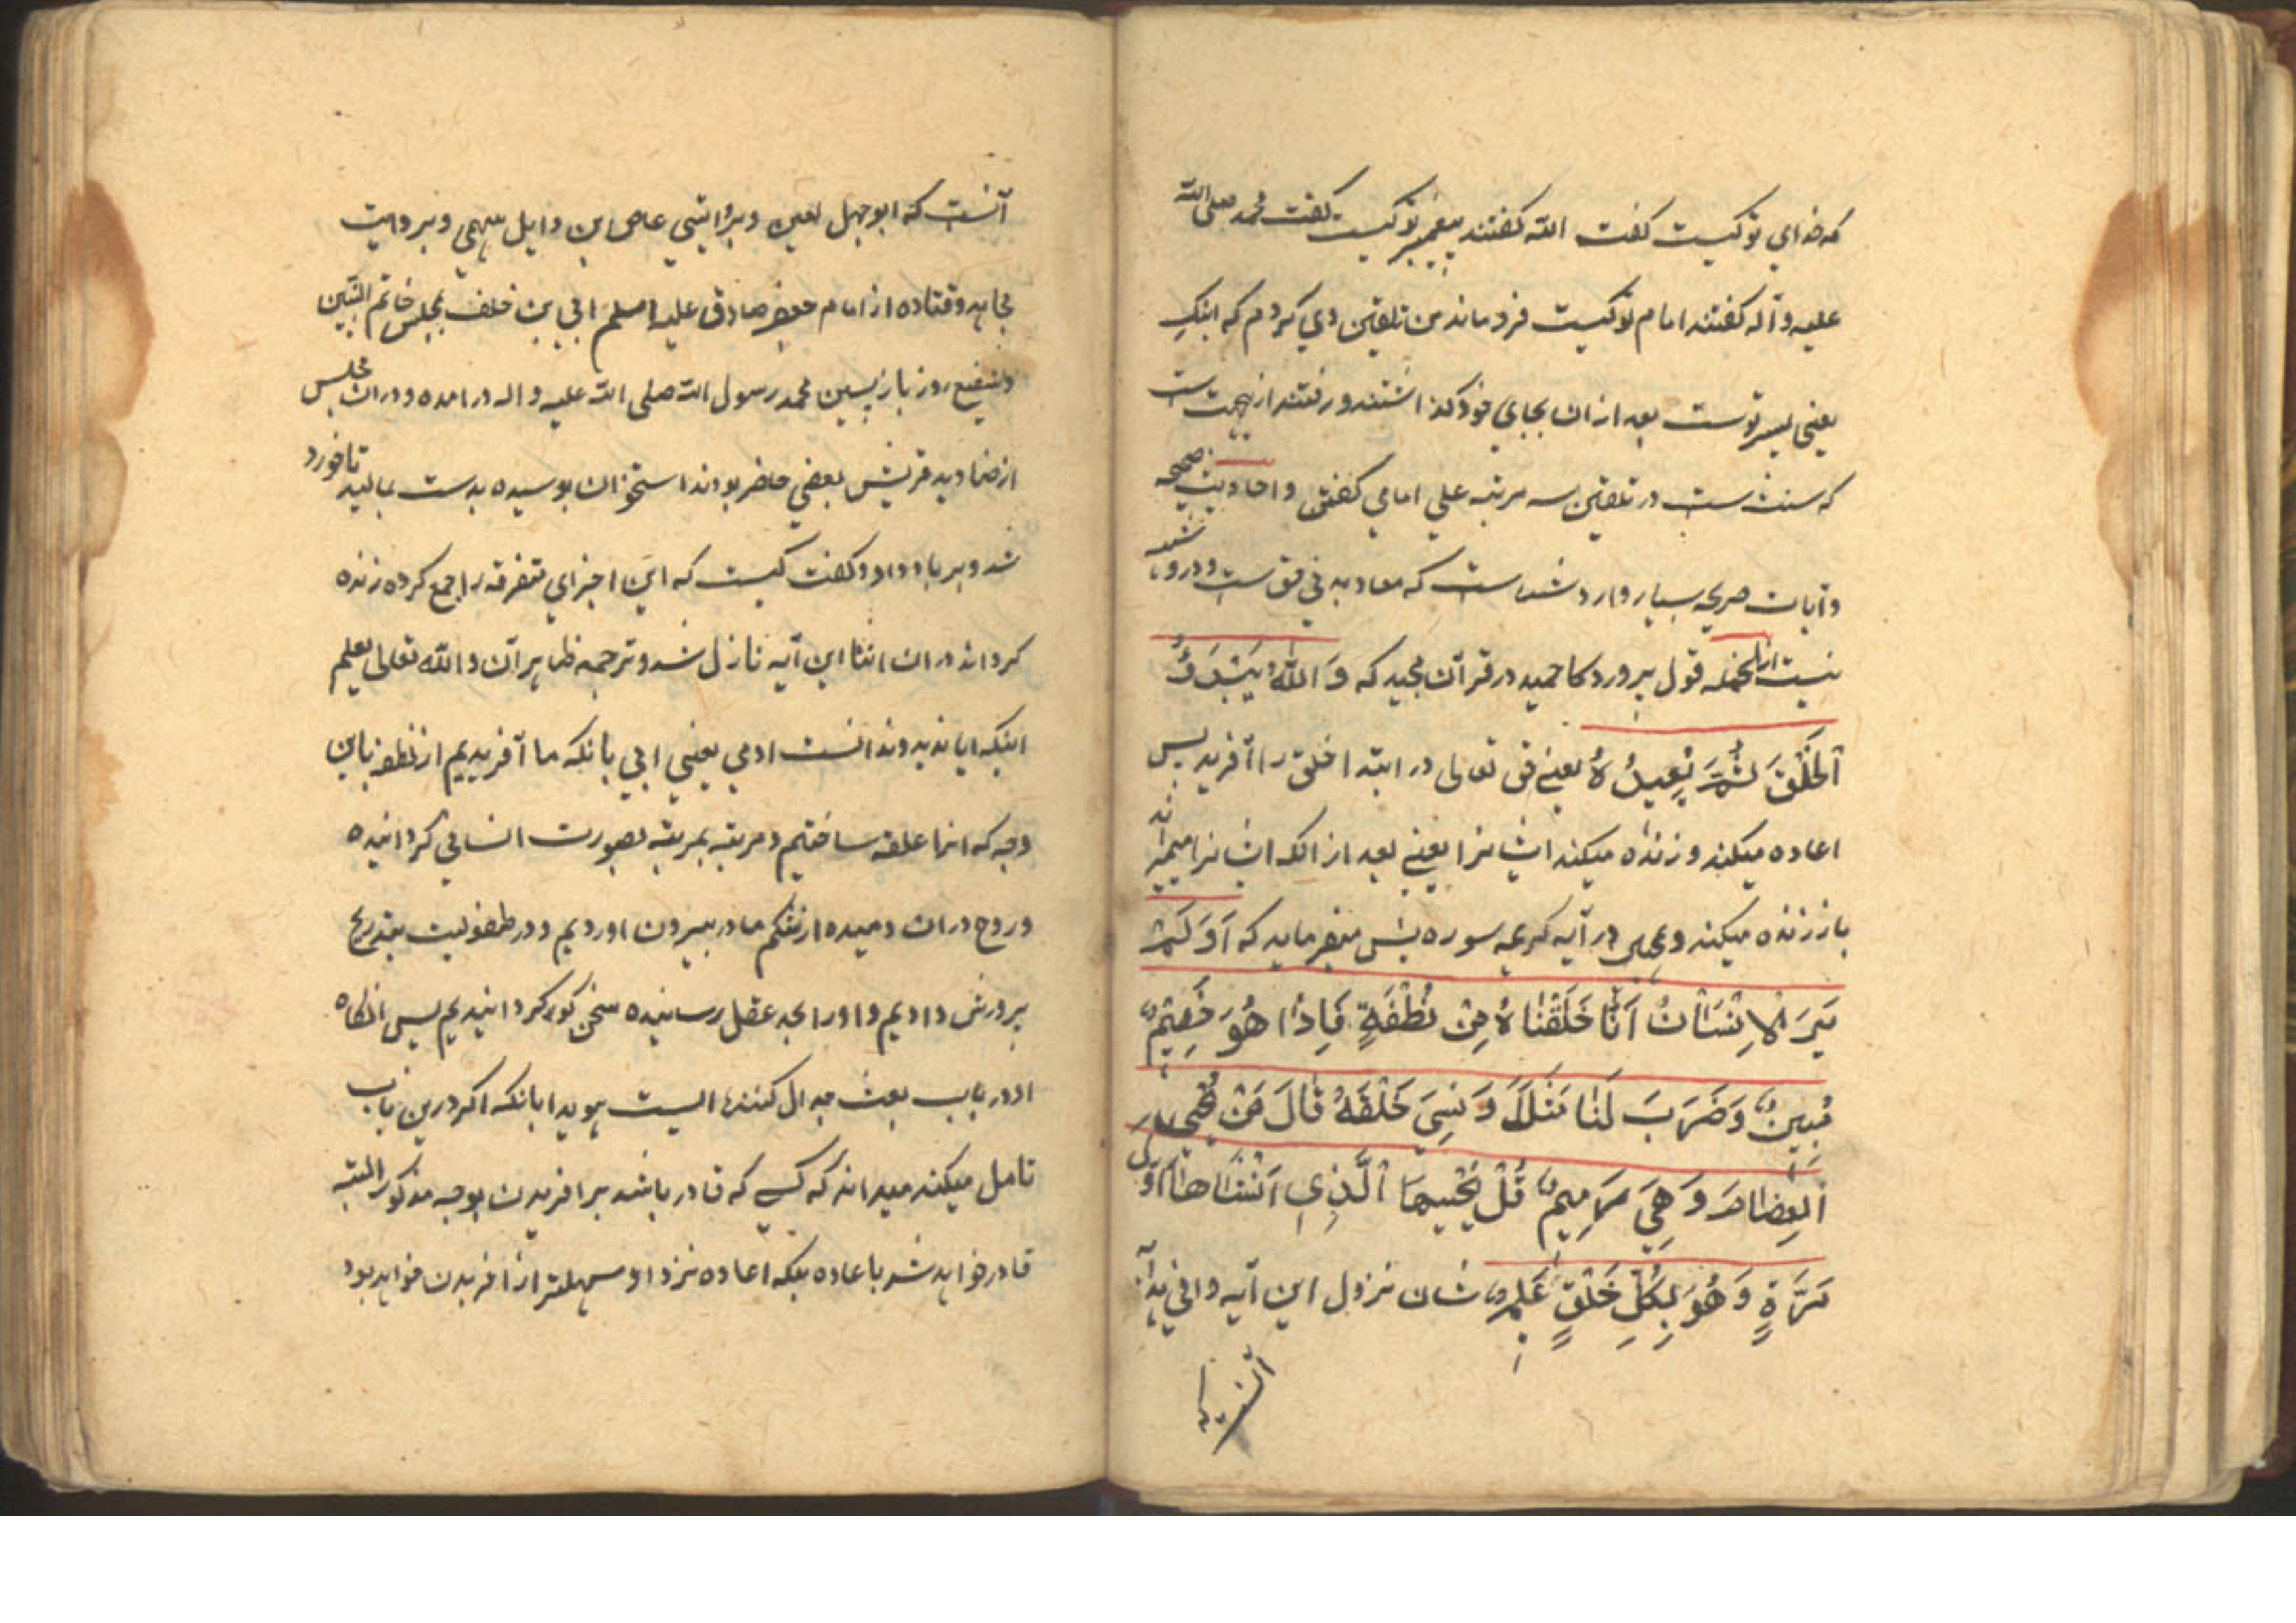 که خدای تو کیست کفت الله کفتند پیغمبر تو کیست کفت محمد صلی الله
علیه و آله کفتند امام تو کیست فرو ماند من تلقین وی کردم که ابنک
یعنی پسر توست بعد از ان بجای خود کذاشتند و رفتند ازین جهت است
که سنت ست در تلقین سه مرتبه علی امامی کفتن و احادیث صحیحه
و آیات صریحه بسیار وارد شده است که معاد بدنی حق ست و در وی شبهه
نیست از انجمله قول پروردکار حمید در قرآن مجید که وَ اللّٰهُ یَبْدَؤُ
اَلْخَلْقَ ثُمَّ یُعِیدُهُ یعنی حق تعالی در ابتدا خلق را آفرید پس
اعاده میکند و زنده میکند ایشانرا یعنی بعد از انکه ایشانرا میراند
باز زنده میکند و در آیه کریمه سوره یس میفرماید که اَوَ لَمْ
یَرَ الْاِنْسَانُ اَنَّا خَلَقْنَاهُ مِنْ نُطْفَةٍ فَاِذَا هُوَ خَصِیمٌ
مُبِینٌ وَ ضَرَبَ لَنَا مَثَلًا وَ نَسِیَ خَلْقَهُ قَالَ مَنْ یُحْیِی
الْعِظَامَ وَ هِیَ رَمِیمٌ قُلْ یُحْیِیهَا الَّذِی اَنْشَاَهَا اَوَّلَ
مَرَّةٍ وَ هُوَ بِکُلِّ خَلْقٍ عَلِیمٌ شان نزول این آیه وافی هدایه
آنست که
آنست که ابوجهل لعین و بروایتی عاص ابن وایل سهمی و بروایت
مجاهد و قتاده از امام جعفر صادق علیه السلم ابی بن خلف بمجلس خاتم النبیین
و شفیع روز بازپسین محمد رسول الله صلی الله علیه و اله در امده و در ان مجلس
از صنادید قریش بعضی حاضر بودند استخوان بوسیده بدست بمالید تا خورد
شد و بر باد داد و کفت کیست که این اجزای متفرقه را جمع کرده زنده
کرداند در ان اثنا این آیه نازل شد و ترجمه ظاهر آن و الله تعالی یعلم
اینکه ایا ندید و ندانست ادمی یعنی ابی بانکه ما آفریدیم از نطفه باین
وجه که انرا علقه ساختیم و مرتبه بمرتبه بصورت انسانی کردانیده
و روح در ان دمیده از شکم مادر بیرون اوردیم و در طفولیت بتدریج
پرورش دادیم و او را بحد عقل رسانیده سخن کوی کردانیدیم پس انکاه
او در باب بعث جدال کننده ایست هویدا بانکه اکر درین باب
تامل میکند میداند که کسی که قادر باشد بر افریدن بوجه مذکور البته
قادر خواهد شد باعاده بلکه اعاده نزد او سهلتر از افریدن خواهد بود